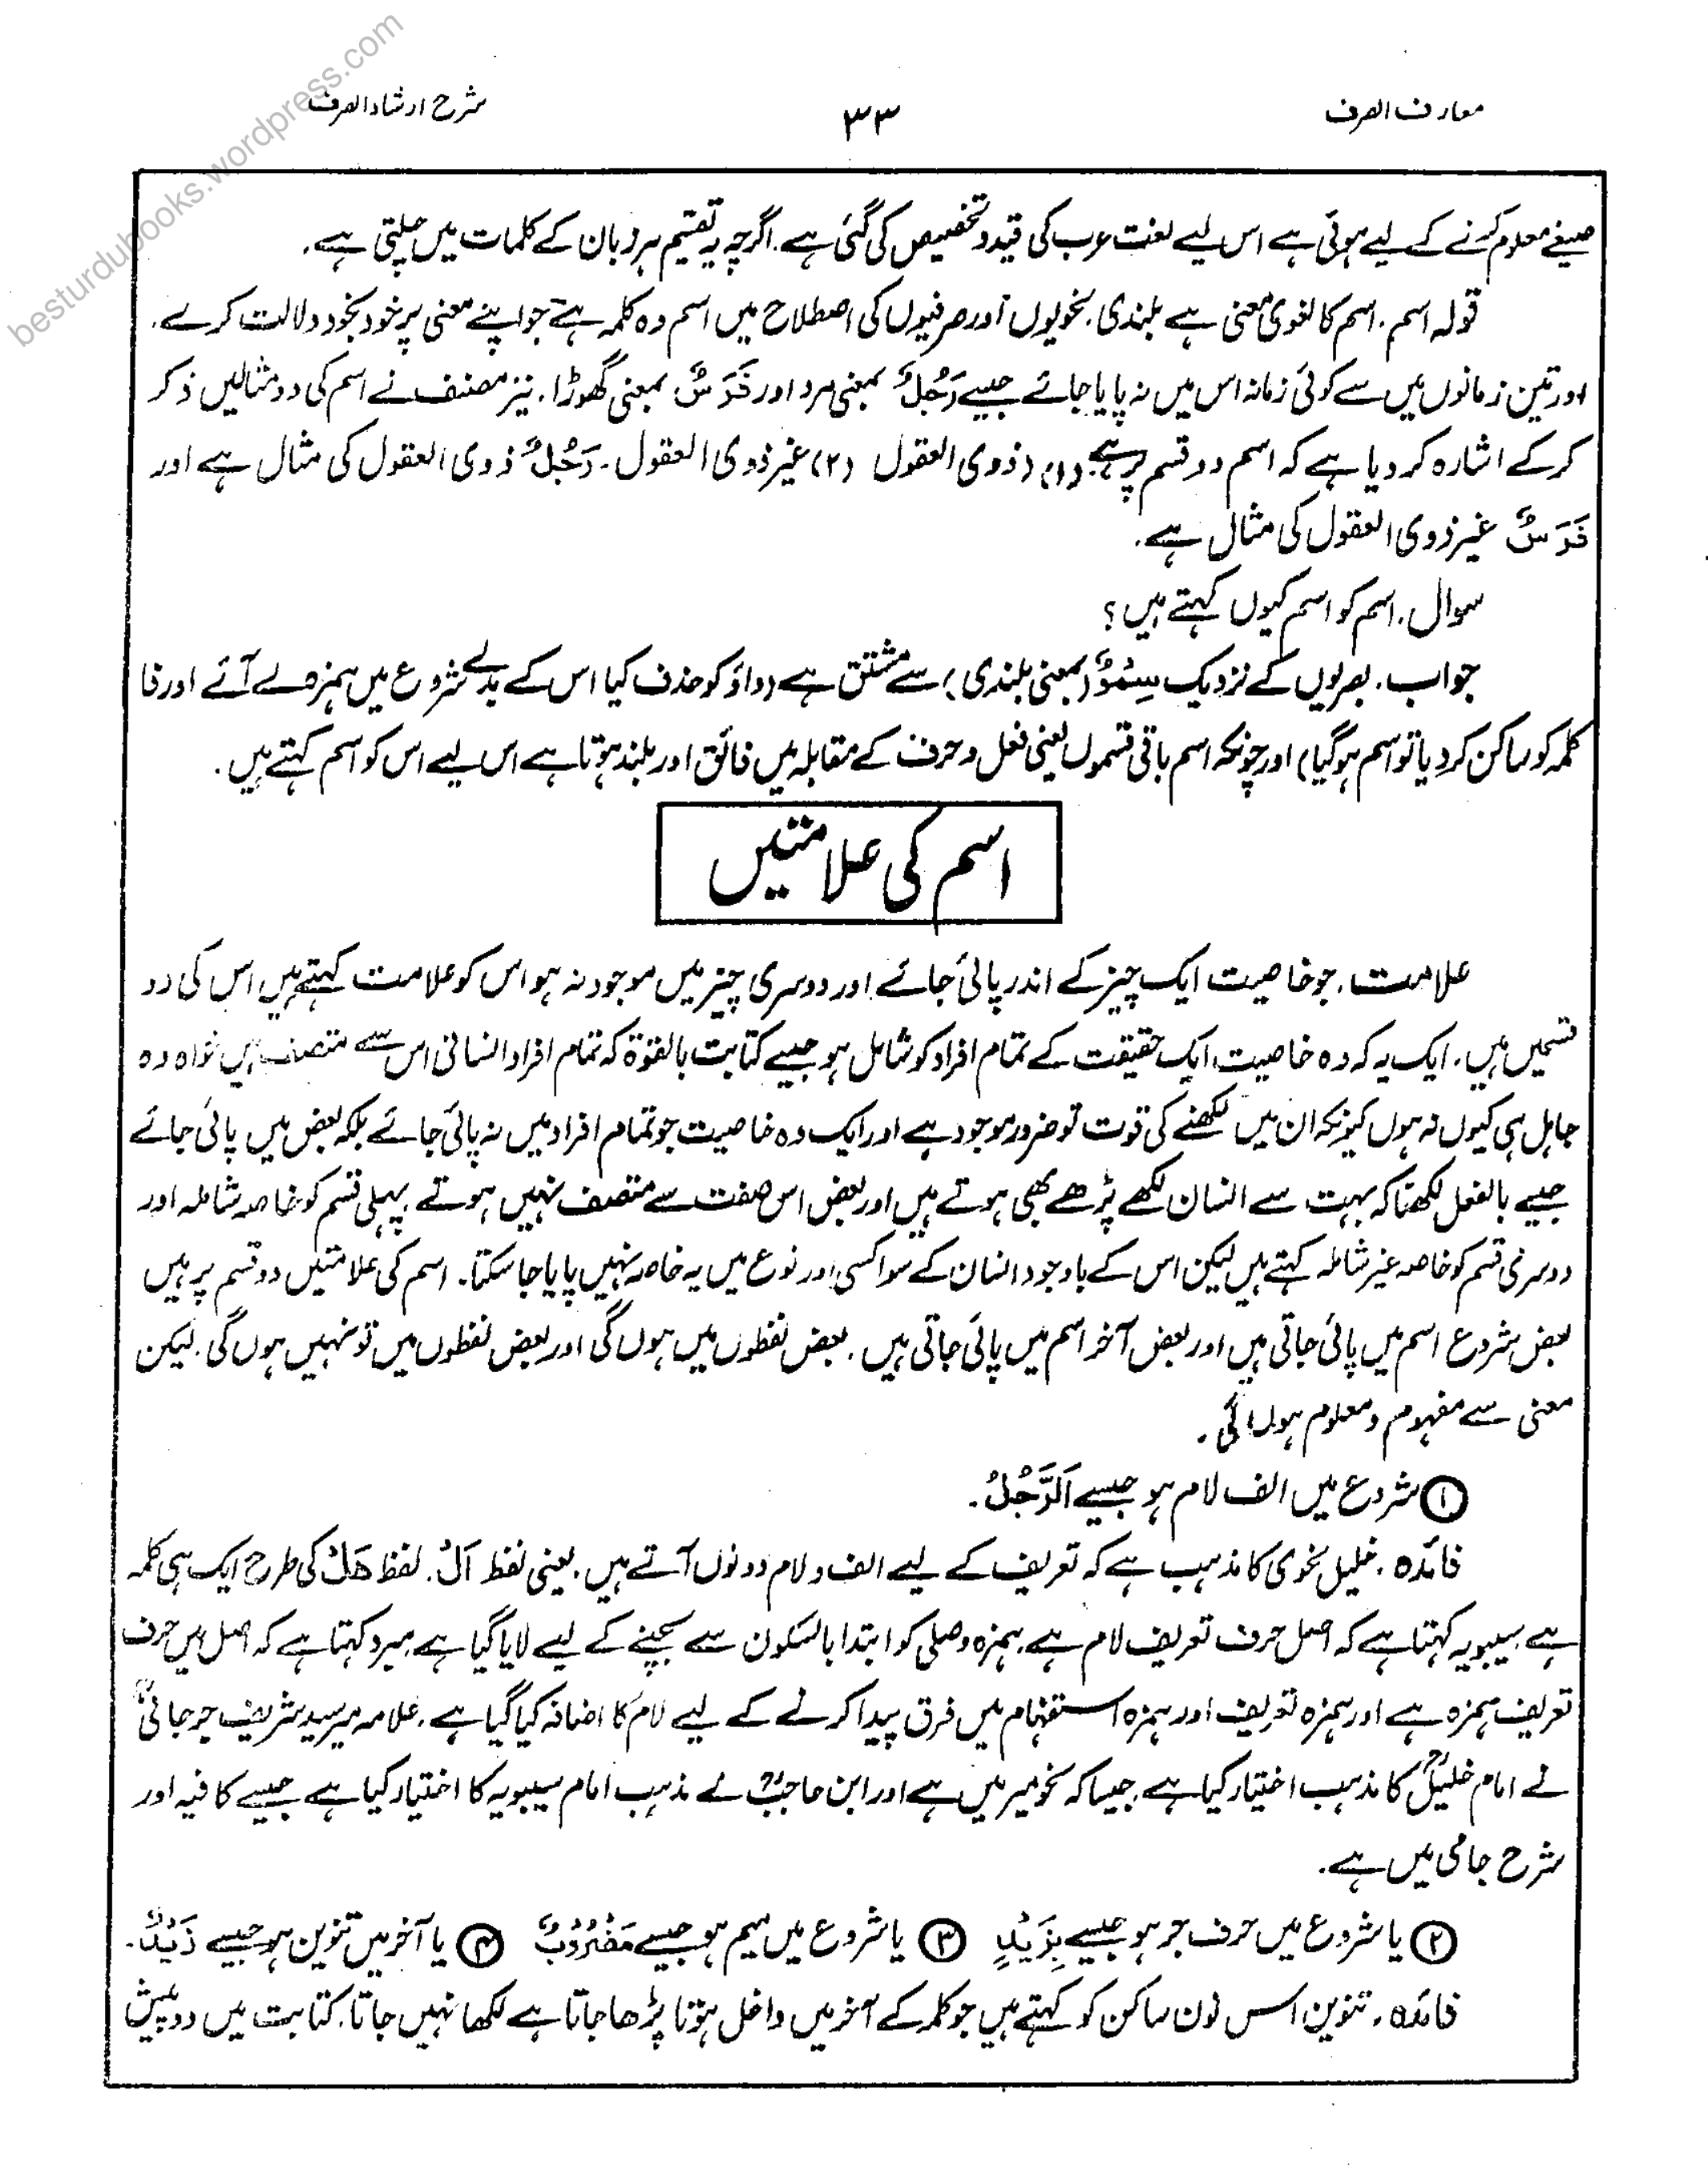 معارف الصرف
۳۳
شرح ارشاد الصرف
besturdubooks.wordpress.com
صیغے معلوم کرنے کے لیے ہوئی ہے اس لیے لغت عرب کی قید و تخصیص کی گئی ہے۔ اگرچہ یہ تقسیم ہر زبان کے کلمات میں چلتی ہے۔
قولہ اسم۔ اسم کا لغوی معنی ہے بلندی۔ نحویوں اور صرفیوں کی اصطلاح میں اسم وہ کلمہ ہے جو اپنے معنی پر خود بخود دلالت کرے۔
اور تین زمانوں میں سے کوئی زمانہ اس میں نہ پایا جائے جیسے رَجُلٌ بمعنی مرد اور فَرَسٌ بمعنی گھوڑا۔ نیز مصنف نے اسم کی دو مثالیں ذکر
کرکے اشارہ کر دیا ہے کہ اسم دو قسم پر ہے (۱) ذوی العقول (۲) غیر ذوی العقول۔ رَجُلٌ ذوی العقول کی مثال ہے اور
فَرَسٌ غیر ذوی العقول کی مثال ہے۔
سوال۔ اسم کو اسم کیوں کہتے ہیں؟
جواب۔ بصریوں کے نزدیک سِمُوٌّ (بمعنی بلندی) سے مشتق ہے (واؤ کو حذف کیا اس کے بدلے شروع میں ہمزہ لے آئے اور فا
کلمہ کو ساکن کر دیا تو اسم ہوگیا) اور چونکہ اسم باقی قسموں یعنی فعل و حرف کے مقابلہ میں فائق اور بلند ہوتا ہے اس لیے اس کو اسم کہتے ہیں۔
اسم کی علامتیں
علامت۔ جو خاصیت ایک چیز کے اندر پائی جائے اور دوسری چیز میں موجود نہ ہو اس کو علامت کہتے ہیں اس کی دو
قسمیں ہیں۔ ایک یہ کہ وہ خاصیت ایک حقیقت کے تمام افراد کو شامل ہو جیسے کتابت بالقوۃ کہ تمام افراد انسانی اس سے متصف ہیں خواہ وہ
جاہل ہی کیوں نہ ہوں کیونکہ ان میں لکھنے کی قوت تو ضرور موجود ہے اور ایک وہ خاصیت جو تمام افراد میں نہ پائی جائے بلکہ بعض میں پائی جائے
جیسے بالفعل لکھنا کہ بہت سے انسان لکھے پڑھے بھی ہوتے ہیں اور بعض اس صفت سے متصف نہیں ہوتے پہلی قسم کو خاصہ شاملہ اور
دوسری قسم کو خاصہ غیر شاملہ کہتے ہیں لیکن اس کے باوجود انسان کے سوا کسی اور نوع میں یہ خاصہ نہیں پایا جا سکتا۔ اسم کی علامتیں دو قسم پر ہیں
بعض شروع اسم میں پائی جاتی ہیں اور بعض آخر اسم میں پائی جاتی ہیں۔ بعض لفظوں میں ہوں گی اور بعض لفظوں میں تو نہیں ہوں گی۔ لیکن
معنی سے مفہوم و معلوم ہوں گی۔
① شروع میں الف لام ہو جیسے اَلرَّجُلُ۔
فائدہ۔ خلیل نحوی کا مذہب ہے کہ تعریف کے لیے الف و لام دونوں آتے ہیں۔ یعنی لفظ اَلْ۔ لفظ ھَلْ کی طرح ایک ہی کلمہ
ہے سیبویہ کہتا ہے کہ اصل حرف تعریف لام ہے ہمزہ وصلی کو ابتدا بالسکون سے بچنے کے لیے لایا گیا ہے مبرد کہتا ہے کہ اصل میں حرف
تعریف ہمزہ ہے اور ہمزہ تعریف اور ہمزہ استفہام میں فرق پیدا کرنے کے لیے لام کا اضافہ کیا گیا ہے۔ علامہ میر سید شریف جرجانیؒ
نے امام خلیلؒ کا مذہب اختیار کیا ہے جیسا کہ نحو میر میں ہے اور ابن حاجبؒ نے مذہب امام سیبویہ کا اختیار کیا ہے جیسے کافیہ اور
شرح جامی میں ہے۔
② یا شروع میں حرف جر ہو جیسے بِزَیْدٍ ③ یا شروع میں میم ہو جیسے مَضْرُوْبٌ ④ یا آخر میں تنوین ہو جیسے زَیْدٌ۔
فائدہ۔ تنوین اس نون ساکن کو کہتے ہیں جو کلمہ کے آخر میں داخل ہوتا پڑھا جاتا ہے لکھا نہیں جاتا۔ کتابت میں دو پیش